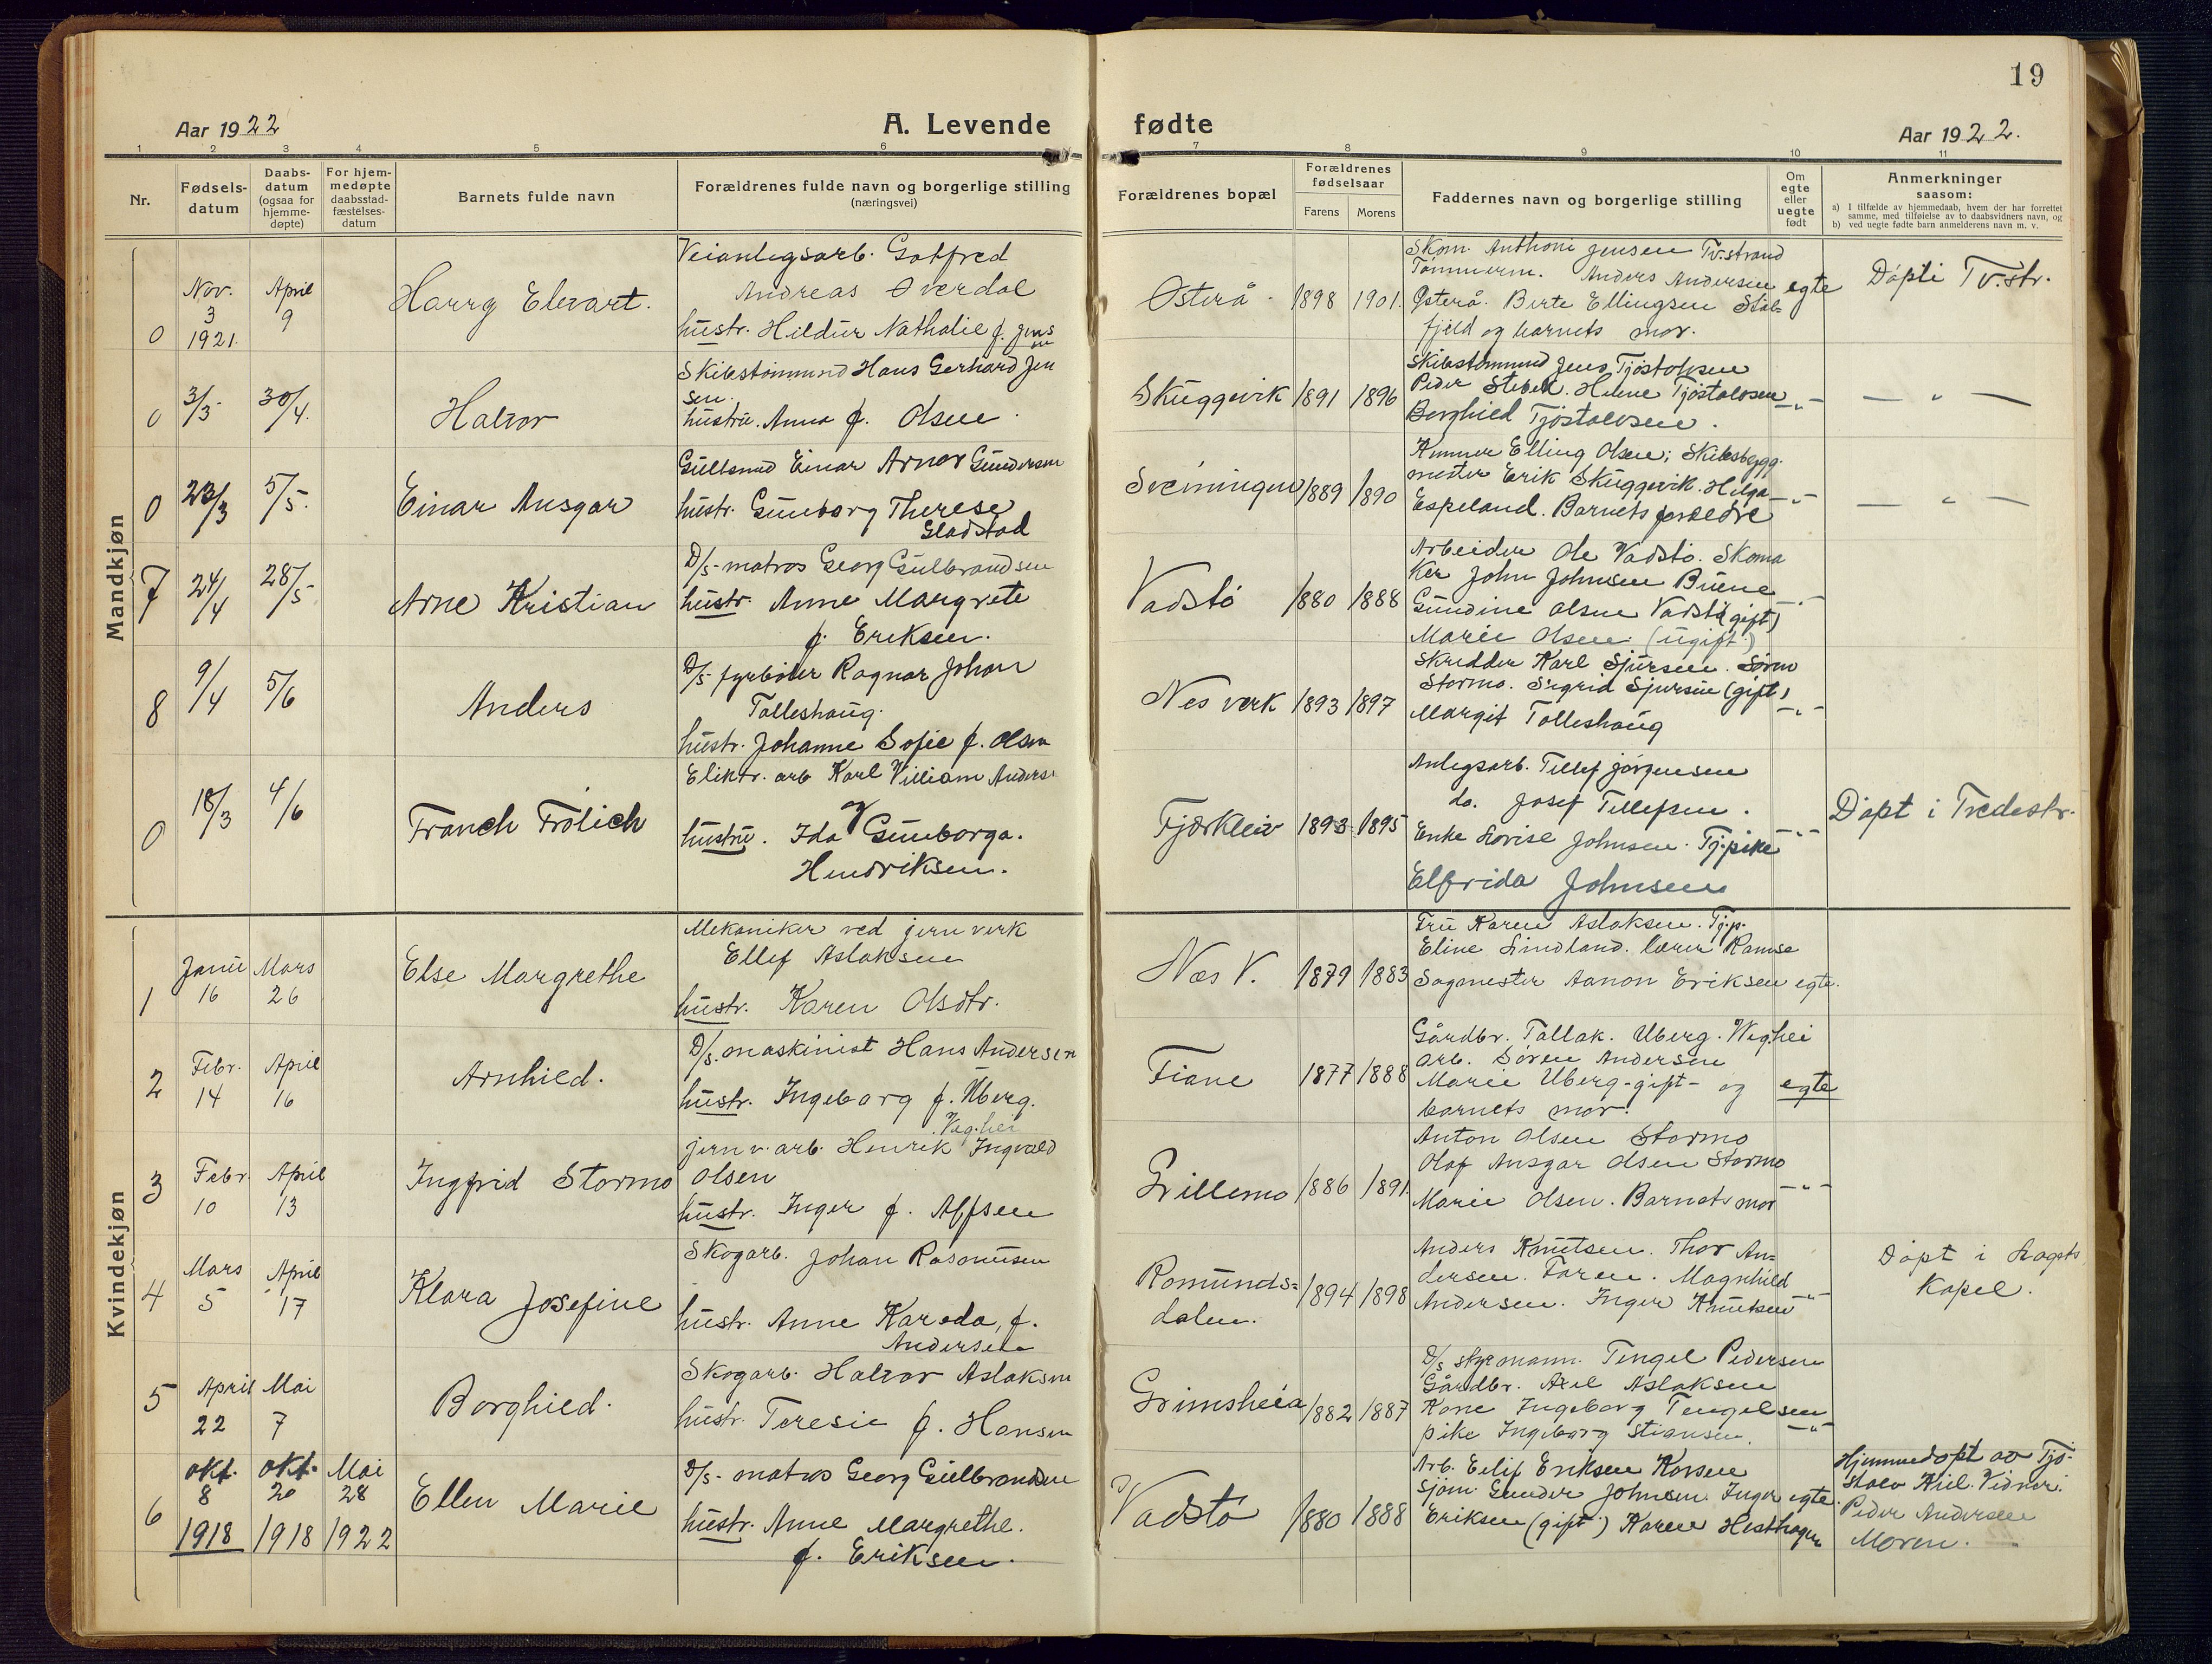 19
Aar 1922
A. Levende
fødte
Aar 1922.
1 2 3 4 5 6 7 8 9 10 11
Nr.
Fødsels-
datum
Daabs-
datum
(ogsaa for
hjemme-
døpte)
For hjem-
medøpte
daabsstad-
fæstelses-
datum
Barnets fulde navn
Forældrenes fulde navn og borgerlige stilling
(næringsvei)
Forældrenes bopæl
Forældrenes
fødselsaar
Farens Morens
Faddernes navn og borgerlige stilling
Om
egte
eller
uegte
født
Anmerkninger
saasom:
a) I tilfælde av hjemmedaab, hvem der har forrettet
samme, med tilføielse av to daabsvidners navn, og
b) ved uegte fødte barn anmelderens navn m. v.
Mandkjøn
0
Nov.
3
1921.
April
9
Harry Elevart.
Veianlegsarb. Gotfred
Andreas Overdal
hustr. Hildur Nathalie f. Jens
en
Østerå.
1898 1901.
Skom. Anthoni Jensen Tv.strand
Tømmerm. Anders Andersen
Østerå. Berte Ellingsen Stål-
fjeld og barnets mor.
egte
Døpt i Tv.str.
0
3/3
30/4.
Halvor
Skibstømmmd Hans Gerhard Jen
sen.
hustru. Anna f. Olsen.
Skuggevik
1891 1896
Skibstømmmd Jens Tjøstolvsen
Peder . Helene Tjøstolvsen
Borghild Tjøstolvsen.
— " —
— " —
0
23/3
5/5.
Einar Ansgar
Gullsmed Einar Arnor Gundersen
hustr. Gunborg Therese
Gladstad
Sveiningen
1889 1890
Elling Olsen; Skibsbygg-
mester Erik Skuggevik. Helga
Espeland. Barnets foreldre
— " —
— " —
7
24/4
28/5
Arne Kristian
D/s-matros Georg Gulbrandsen
hustr. Anne Margrete
f. Eriksen.
Vadstø
1880 1888
Arbeider Ole Vadstø. Skoma
ker John Johnsen Buene
Gundine Olsen Vadstø (gift)
Marie Olsen (ugift)
— " —
8
9/4
5/6
Anders
D/s fyrbøter Ragnar Johan
Talleshaug.
hustr. Johanne Sofie f. Olsen
Nes verk
1893 1897
Skredder Karl Sjursen. Søren
Stormo. Sigrid Sjursen (gift)
Margit Talleshaug
— " —
0
18/3
4/6
Franch Frölich
Elektr. arb Karl Villiam Anders.
og
hustru. Ida Gunborga.
Hendriksen.
Fjærkleiv
1893 1895
Anlegsarb. Tellef Jörgensen
do. Josef Tellefsen.
Enke Lovise Johnsen. Tj.pike
Elfrida Johnsen
— " —
Døpt i Tvedestr.
Kvindekjøn
1
Janu
16
Mars
26
Else Margrethe
Mekaniker ved jernverk
Ellef Aslaksen
hustr. Karen Olsdtr.
Næs V.
1879 1883
Fru Karen Aslaksen. Tjp.
Eline Lindland. Lærer Ramse
Sagmester Aanon Eriksen
egte.
2
Febr.
14
April
16
Arnhild.
D/s. maskinist Hans Andersen
hustr. Ingeborg f. Uberg.
Veg.hei
Fiane
1877 1888
Gårdbr. Tallak. Uberg. Weg.hei
Arb. Søren Andersen
Marie Uberg-gift- og
barnets mor.
egte
3
Febr.
10
April
13
Ingfrid Stormo
jern v. arb. Henrik Ingvald
Olsen
hustr. Inger f. Alfsen
Grillemo
1886 1891
Anton Olsen Stormo
Olaf Ansgar Olsen Stormo
Marie Olsen. Barnets mor
— " —
4
Mars
5
April
17
Klara Josefine
Skogarb. Johan Rasmusen
hustr. Anne Kareda, f.
Andersen
Romunds=
dalen.
1894 1898
Anders Knutsen. Thor An=
dersen. Faren. Magnhild
Andersen. Inger Knutsen
— " —
Døpt i
Kapel.
5
April
22
Mai
7
Borghild.
Skogarb. Halvor Aslaksen
hustr. Teresie f. Hansen
Grimsheia
1882 1887
D/s styrmann. Tengel Pedersen
Gårdbr. Axel Aslaksen
Kone Ingeborg Tengelsen
pike Ingeborg Stiansen.
— " —
6
Okt.
8
1918
Okt.
20
1918
Mai
28
1922
Ellen Marie
D/s- matros Georg Gulbrandsen
hustr. Anne Margrethe.
f. Eriksen.
Vadstø
1880 1888
Arb. Eilif Eriksen Korsen
Sjøm. Gunder Johnsen. Inger
Eriksen (gift) Karen Hesthagen
egte.
Hjemmedøpt av Tjø-
stolv Kiil. Vidner:
Peder Andersen
Moren.